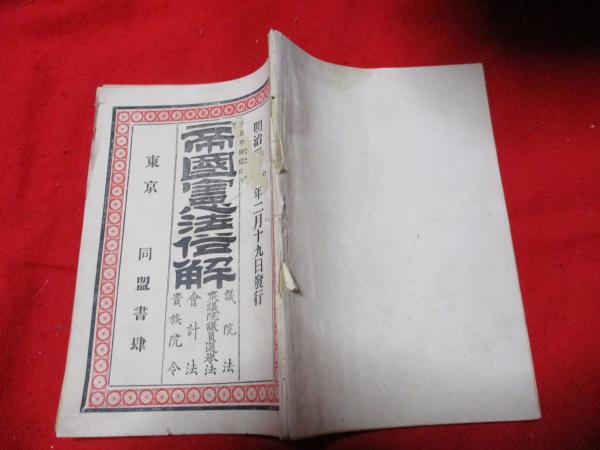 明治二 年二月十九日發行
帝國憲法俗解
議院法
衆議院議員選擧法
會計法
貴族院令
東京 同盟書肆